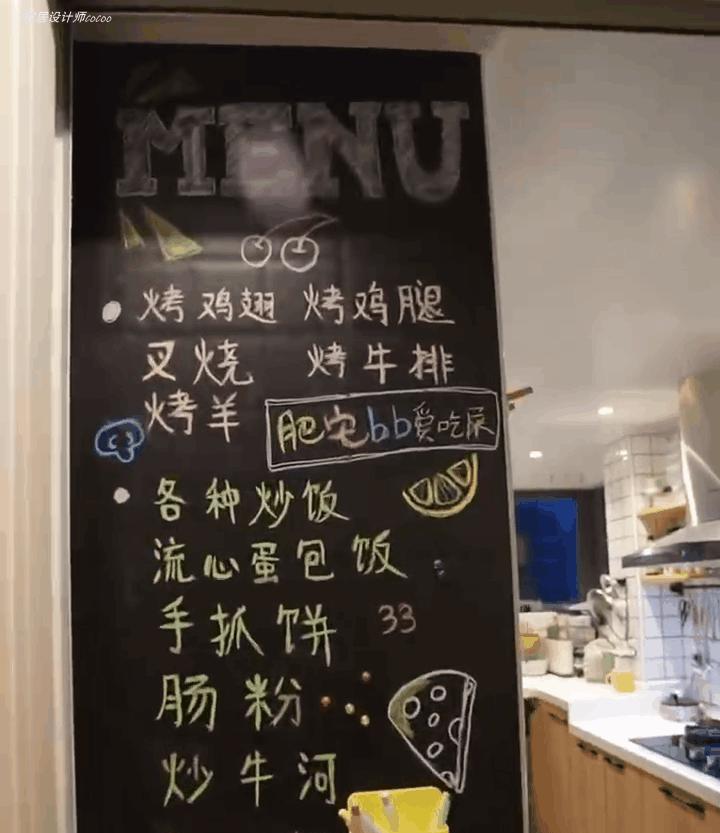 居设计师cocoo
MENU
烤鸡翅 烤鸡腿
叉烧 烤牛排
烤羊
肥宅bb爱吃屎
各种炒饭
流心蛋包饭
手抓饼 33
肠粉
炒牛河